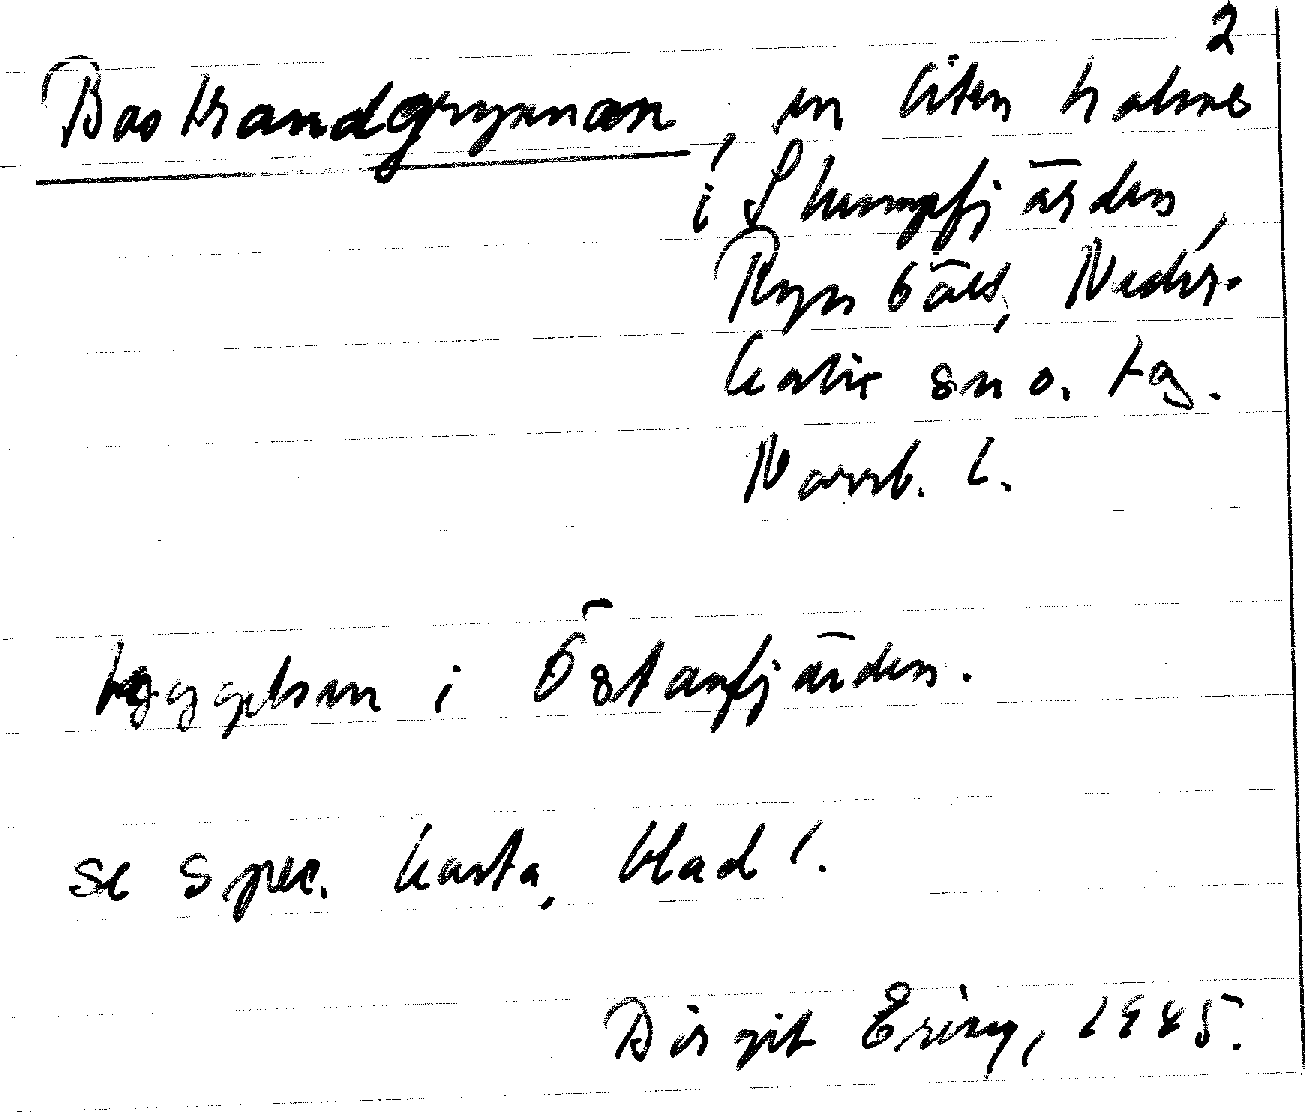 2
Bastrandgrynnan, en liten holme
i Skumpfjärden,
Ryssbält, Neder-
kalix sn o. tg.
Norrb. l.
byggelsen i Östanfjärden.
se spec. karta, blad 1.
Birgit Ering, 1945.